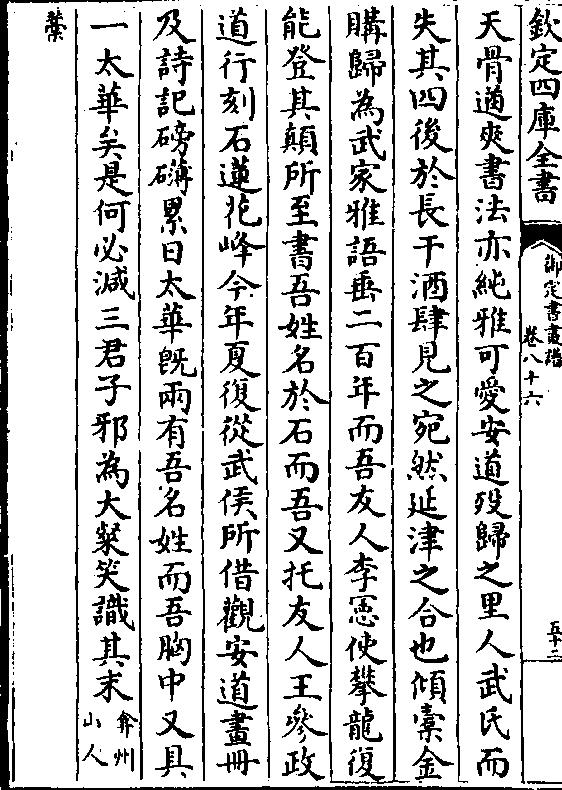 欽定四庫全書
御定書畫譜
卷八十六
五十二
天骨遒爽書法亦純雅可愛安道歿歸之里人武氏而
失其四後於長干酒肆見之宛然延津之合也傾橐金
購歸為武家雅語垂二百年而吾友人李憲使攀龍復
能登其顛所至書吾姓名於石而吾又托友人王參政
道行刻石蓮花峰今年夏復從武侯所借觀安道畫冊
及詩記磅礴累日太華既兩有吾名姓而吾胸中又具
一太華矣是何必減三君子邪為大粲笑識其末
弇州
山人
藁